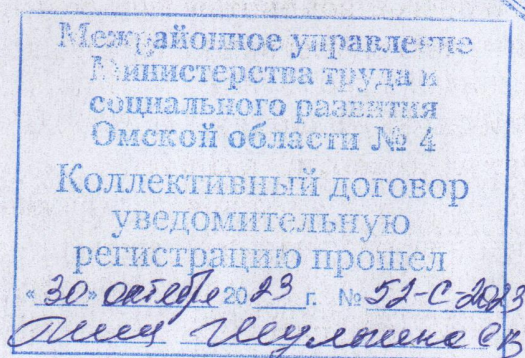 Межрайонное управление
Министерства труда и
социального развития
Омской области № 4
Коллективный договор
уведомительную
регистрацию прошел
«30» октября 2023 г. № 52-С-2023